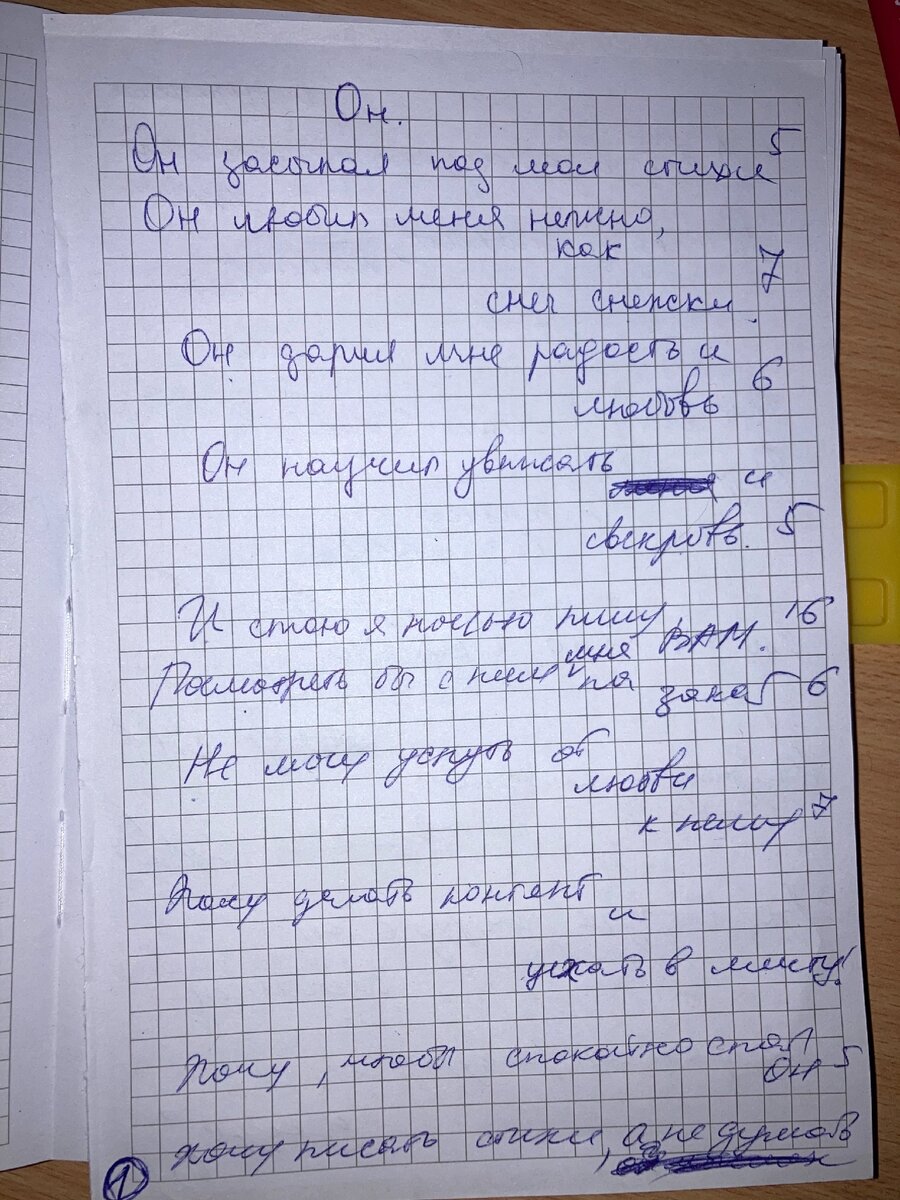 Он.
Он засыпал под мои стихи 5
Он любил меня нежно,
как
снег снежски. 7
Он дарил мне радость и
любовь 6
Он научил уважать
и
свекровь. 5
И стою я ночью пишу, 16
мне ВАМ.
Посмотреть бы с ним на
закат 6
Не могу уснуть от
любви
к нему 7
Хочу делать контент
и
уехать в мечту!
Хочу, чтобы спокойно спал
он 5
хочу писать стихи, а не думать
1